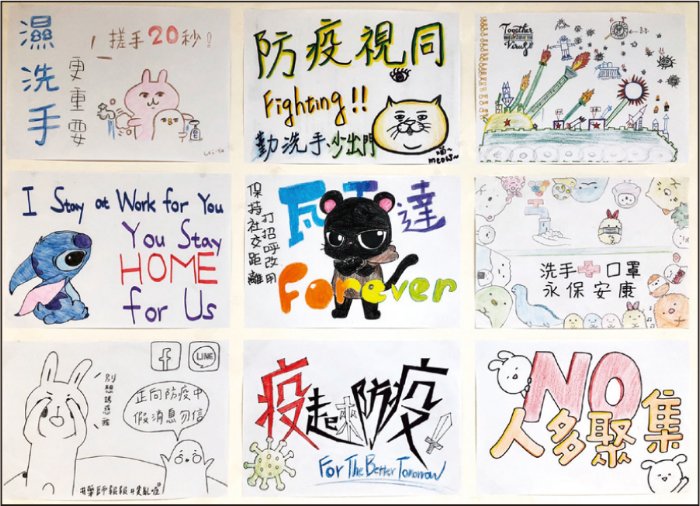 濕洗手
更重要
搓手20秒!
防疫視同
Fighting!!
勤洗手、少出門
喵~
meow~
Together
I Stay at Work for You
You Stay
HOME
for Us
保持社交距離
打招呼改用
瓦干達
Forever
洗手+口罩
永保安康
f
LINE
正向防疫中
假消息勿信
疫起來防疫
For The Better Tomorrow
NO
人多聚集